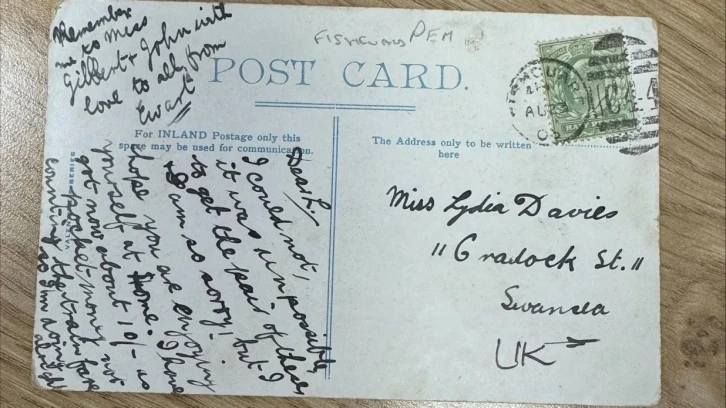 Remember
me to Miss
Gilbert & John with
love to all from
Ewart
FISHGUARD PEM
POST CARD.
For INLAND Postage only this
space may be used for communication.
The Address only to be written
here
Dear L.
I could not,
it was unpossible
to get the pair of these
& I am so sorry. but I
hope you are enjoying
yourself at home. I have
got now about 10/- as
pocket money not
counting the train fare
so I'm doing
alright
Miss Lydia Davies
11 Cradock St.,
Swansea
UK
FISHGUARD
AU